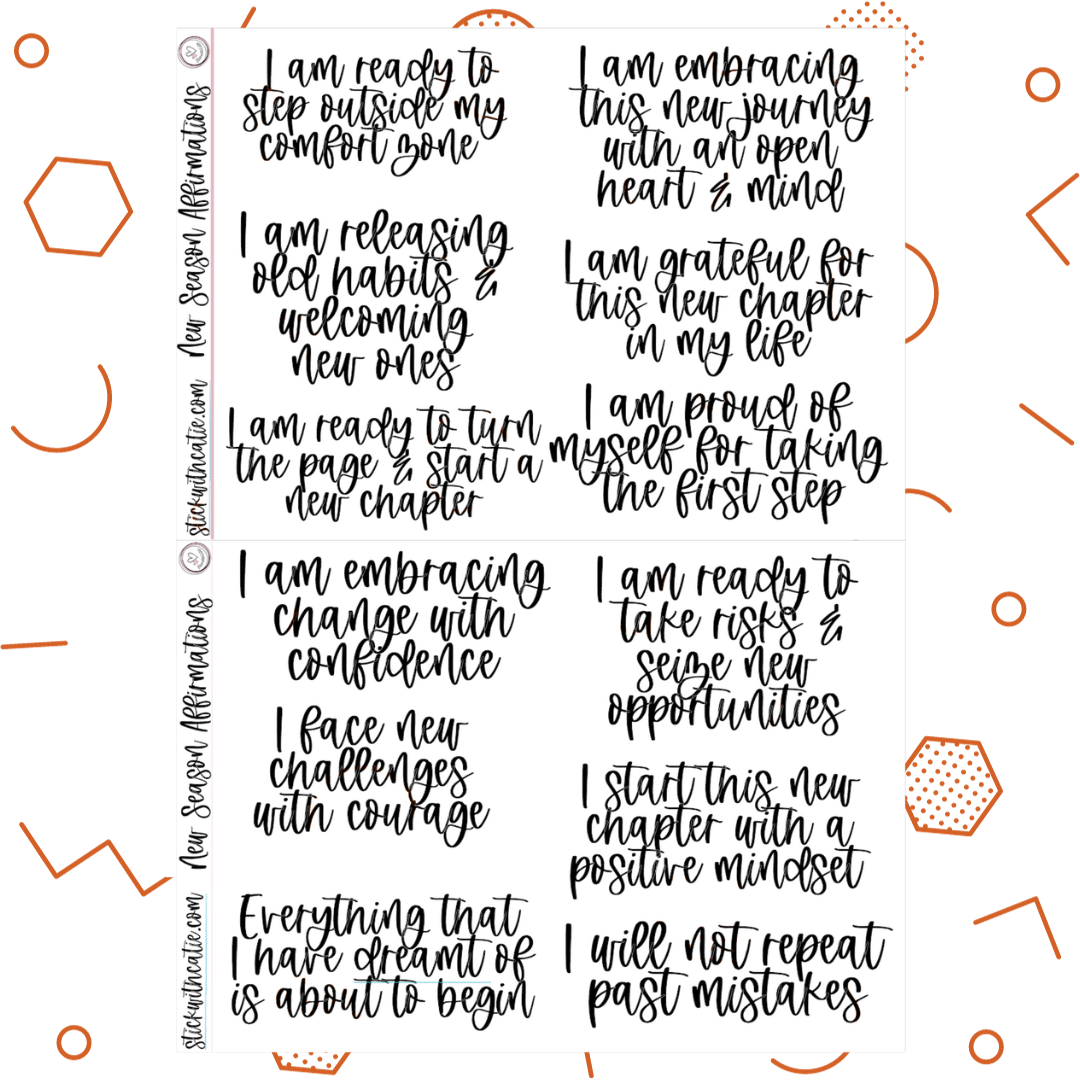 New Season Affirmations
stickwithcatie.com
I am ready to
step outside my
comfort zone
I am releasing
old habits &
welcoming
new ones
I am ready to turn
the page & start a
new chapter
I am embracing
this new journey
with an open
heart & mind
I am grateful for
this new chapter
in my life
I am proud of
myself for taking
the first step
New Season Affirmations
stickwithcatie.com
I am embracing
change with
confidence
I face new
challenges
with courage
Everything that
I have dreamt of
is about to begin
I am ready to
take risks &
seize new
opportunities
I start this new
chapter with a
positive mindset
I will not repeat
past mistakes